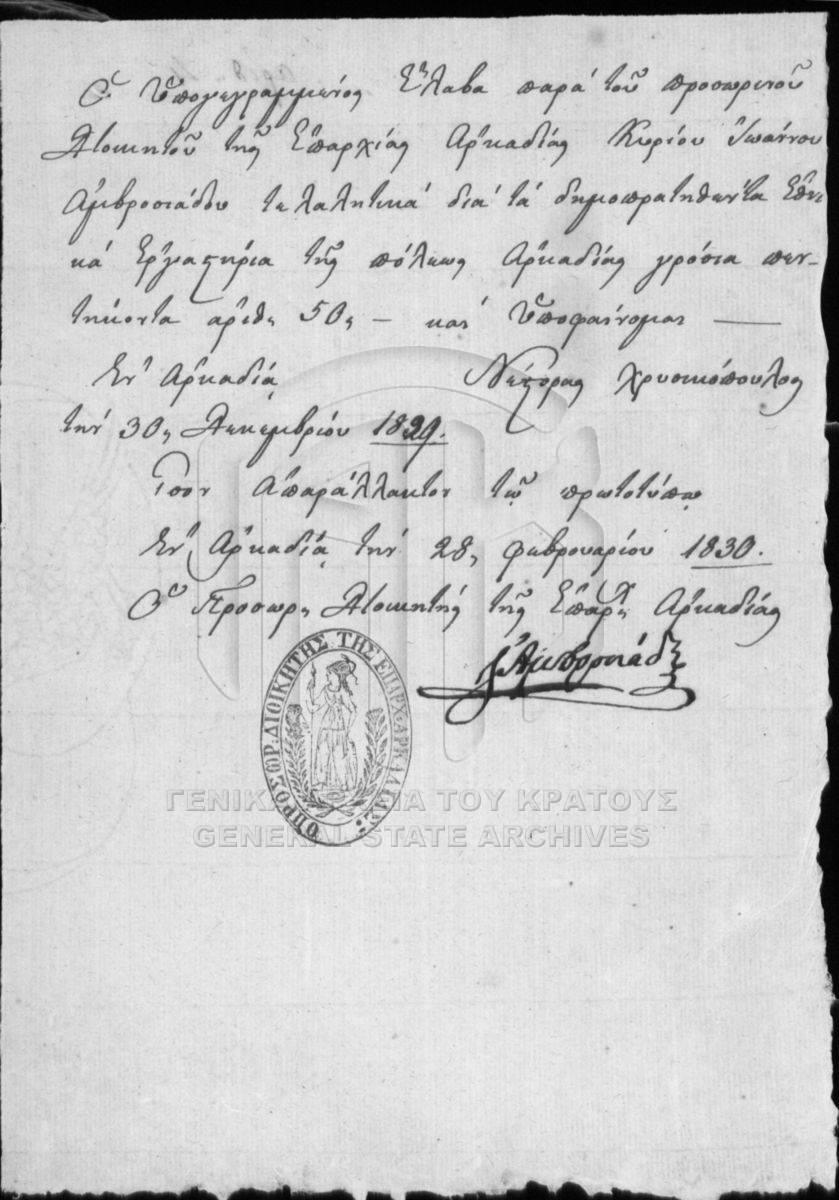 Ὁ Ὑπογεγραμμένος Ἔλαβα παρὰ τοῦ προσωρινοῦ
Διοικητοῦ τῆς Ἐπαρχίας Ἀρκαδίας Κυρίου Ἰωάννου
Ἀμβροσιάδου τελαλητικὰ διὰ τὰ δημοπρατηθέντα ἐθνι-
κὰ ἐργαστήρια τῆς πόλεως Ἀρκαδίας γρόσια πεν-
τήκοντα ἀριθ: 50, — καὶ Ὑποφαίνομαι —
Ἐν Ἀρκαδίᾳ Νέστορας Χρυσικόπουλος
τὴν 30, Δεκεμβρίου 1829.
Ἴσον ἀπαράλλακτον τῷ πρωτοτύπῳ
Ἐν Ἀρκαδίᾳ τὴν 28, φεβρουαρίου 1830.
Ὁ Προσωρ: Διοικητὴς τῆς Ἐπαρχ: Ἀρκαδίας
Ἀμβροσιάδης
Ο ΠΡΟΣΩΡ: ΔΙΟΙΚΗΤΗΣ ΤΗΣ ΕΠΑΡΧ: ΑΡΚΑΔΙΑΣ:
ΓΕΝΙΚΑ ΑΡΧΕΙΑ ΤΟΥ ΚΡΑΤΟΥΣ
GENERAL STATE ARCHIVES